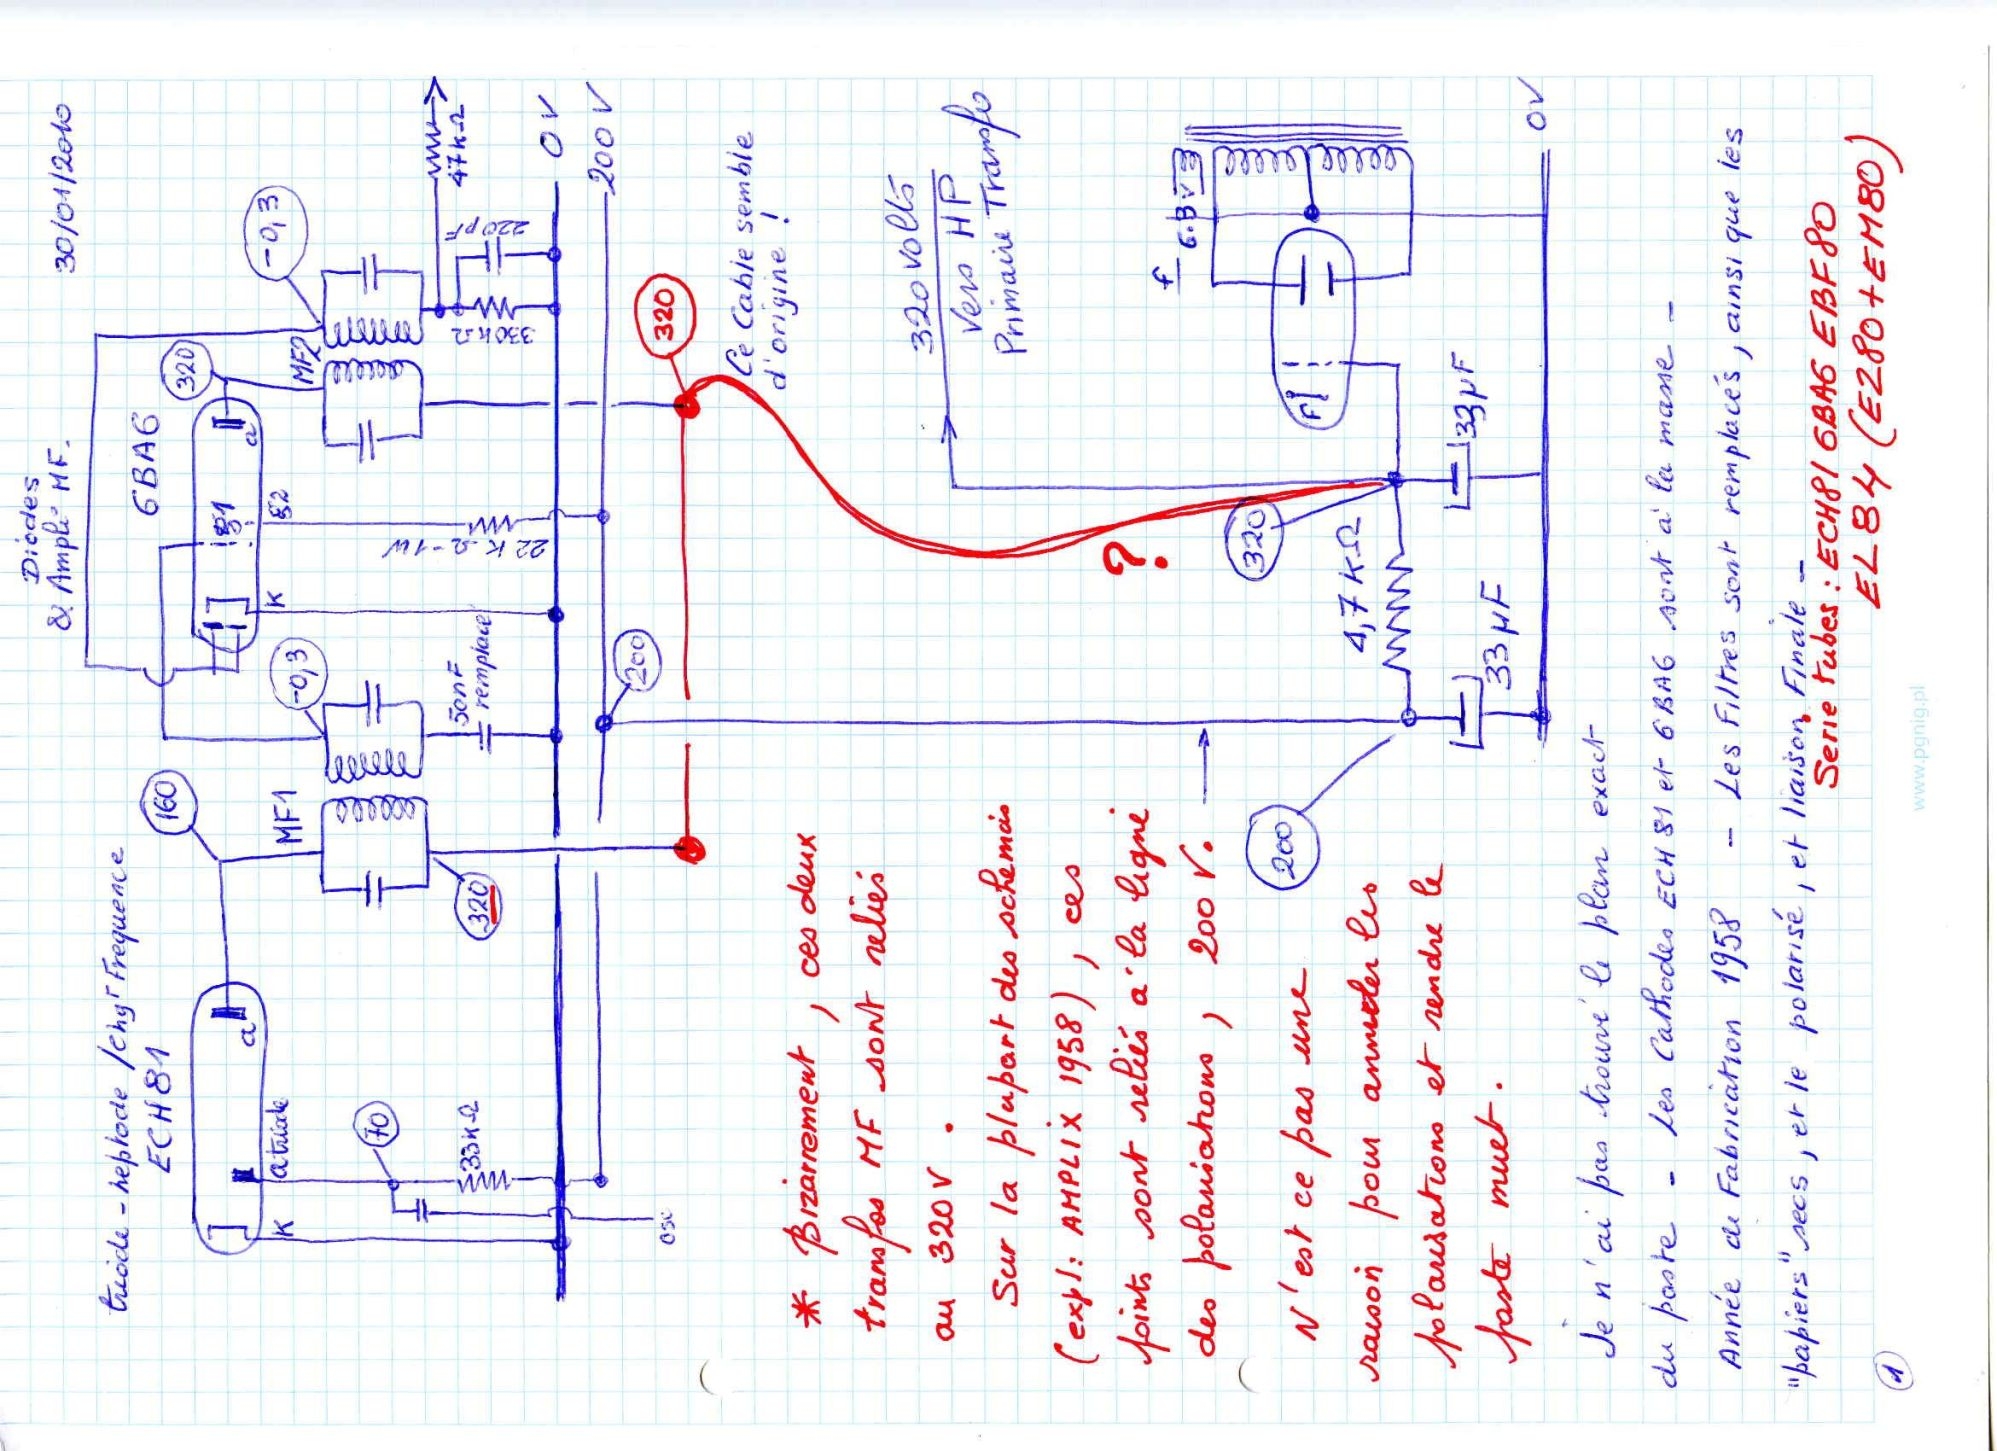 30/01/2010
Diodes
& Ampli MF.
6BA6
320
MF2
-0,3
a
g1
g2
K
47kΩ
220pF
330kΩ
22KΩ-1W
0V
200V
triode-heptode/chgt Frequence
ECH81
160
MF1
-0,3
50nF
remplace
a
atriode
K
70
33kΩ
osc
320
200
320
Ce Cable semble
d'origine !
320 volts
Vers HP
Primaire Transfo
f
6.3V
F
?
320
4,7KΩ
33µF
33µF
200
0V
* Bizarrement, ces deux
transfos MF sont reliés
au 320V.
Sur la plupart des schémas
(expl: AMPLIX 1958), ces
points sont reliés à la ligne
des polarisations, 200V.
N'est ce pas une
raison pour annuler les
polarisations et rendre le
poste muet.
Je n'ai pas trouvé le plan exact
du poste - Les Cathodes ECH81 et 6BA6 sont à la masse -
Année de Fabrication 1958 - Les Filtres sont remplacés, ainsi que les
"papiers" secs, et le polarisé, et liaison Finale -
Serie tubes: ECH81 6BA6 EBF80
EL84 (EZ80+EM80)
1
www.pgnig.pl